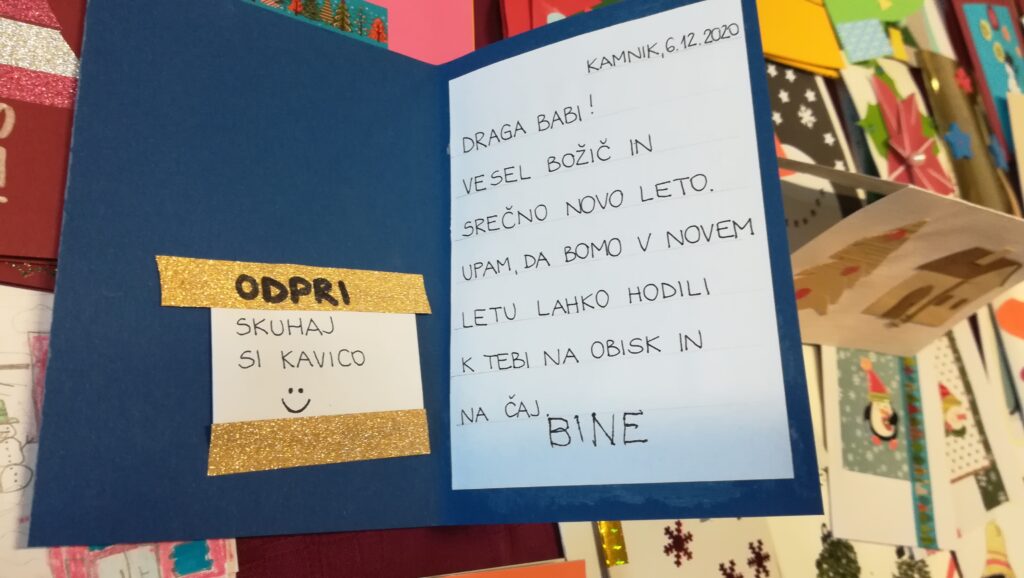 ODPRI
SKUHAJ
SI KAVICO
KAMNIK, 6.12.2020
DRAGA BABI!
VESEL BOŽIČ IN
SREČNO NOVO LETO.
UPAM, DA BOMO V NOVEM
LETU LAHKO HODILI
K TEBI NA OBISK IN
NA ČAJ.
BINE